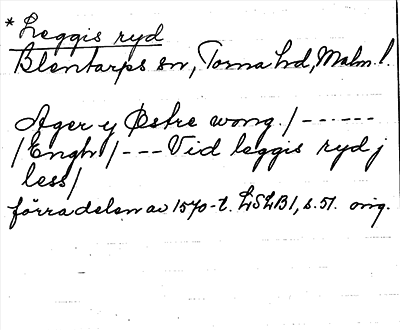 *Leggis ryd
Blentarps sn, Torna hd, Malm. l.
Ager y Østre wong. / ------
/Engh/ --- Vid leggis ryd j
less/
förra delen av 1570-t. LSLB1, s. 51. orig.